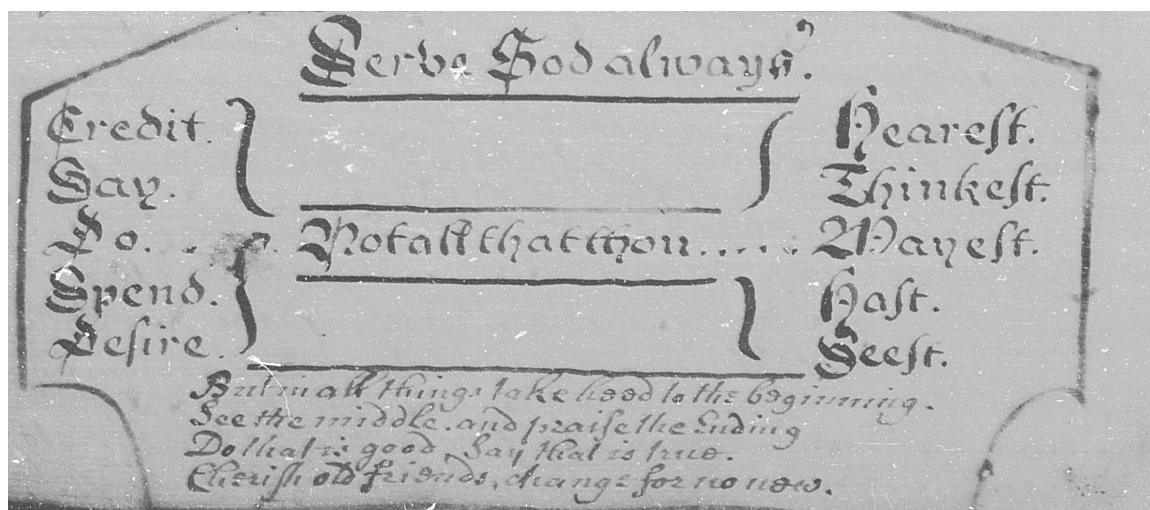 Serve God always.
Credit. Hearest.
Say. Thinkest.
Do. . . . Not all that thou . . . . . Mayest.
Spend. Hast.
Desire. Seest.
But in all things take heed to the beginning.
See the middle. and praise the Ending
Do that is good, Say that is true.
Cherish old friends, change for no new.